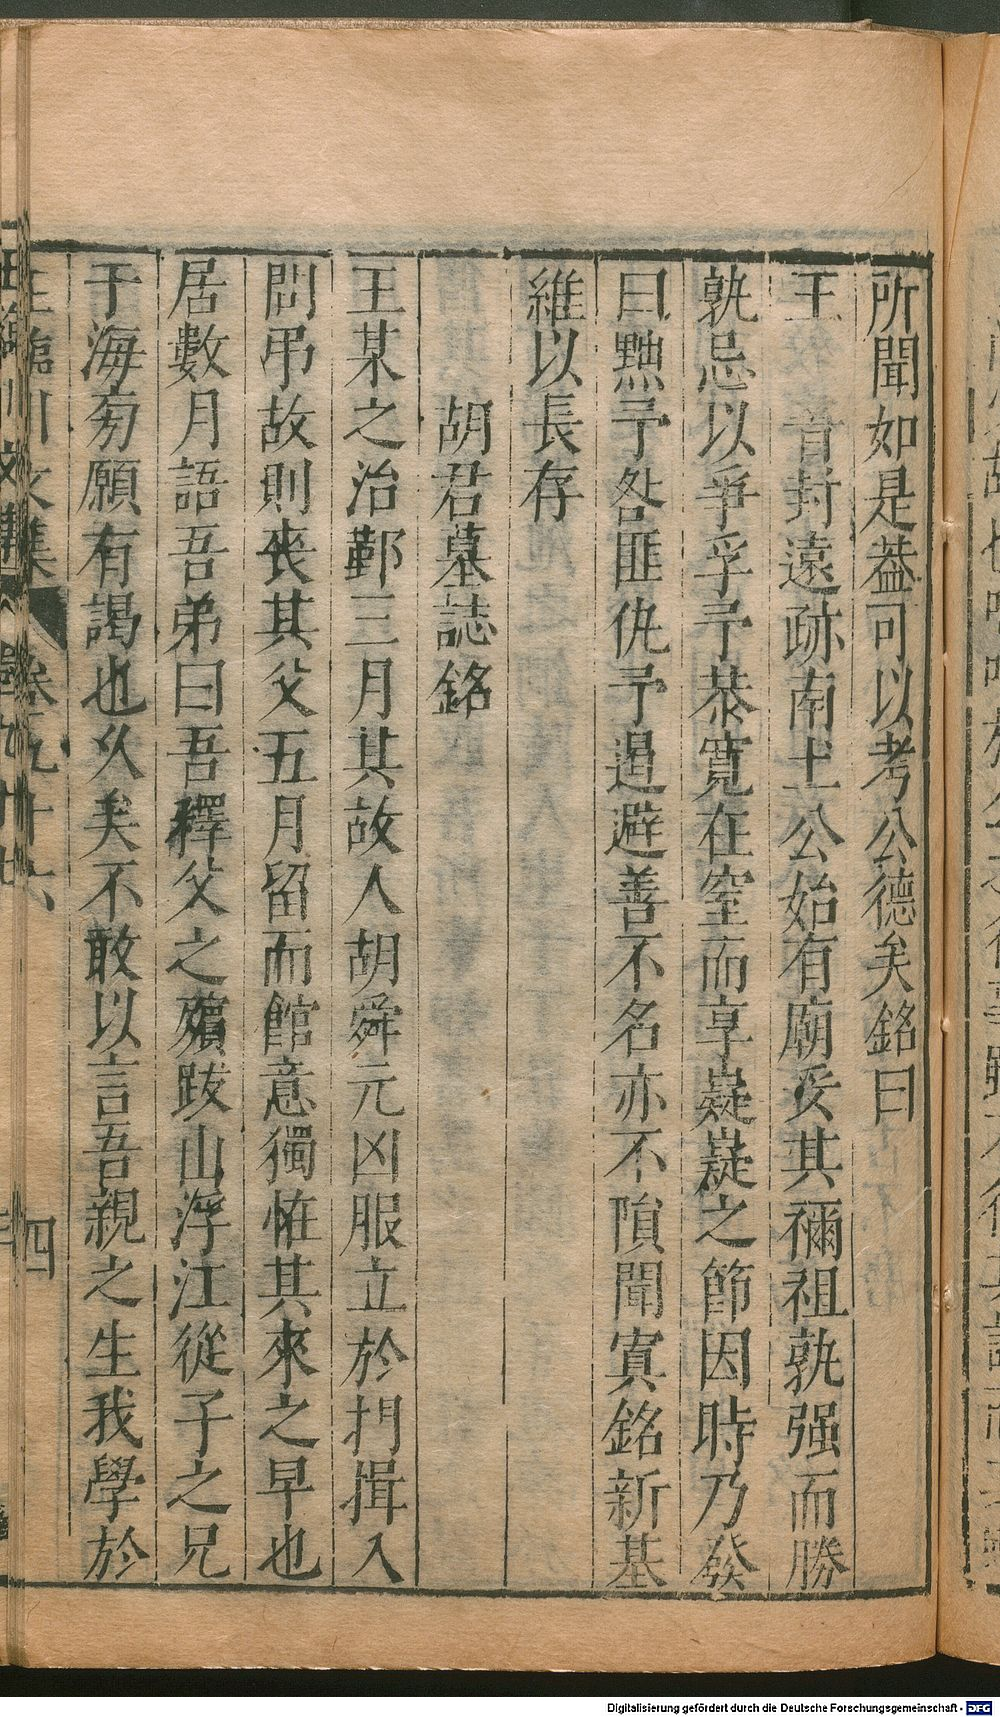 所聞如是葢可以考公德矣銘曰
王 晉封遠跡南土公始有廟妥其禰祖孰强而勝
孰忌以爭孚予恭寬在窒而享嶷嶷之節因時乃發
曰黜予咎匪仇予過避善不名亦不隕聞寘銘新墓
維以長存
胡君墓誌銘
王某之治鄞三月其故人胡舜元凶服立於門揖入
問弔故則喪其父五月留而館意獨怪其來之早也
居數月語吾弟曰吾釋父之殯跋山浮江從子之兄
于海旁願有謁也久矣不敢以言吾親之生我學於
王臨川文集 卷九十六 四
Digitalisierung gefördert durch die Deutsche Forschungsgemeinschaft - DFG